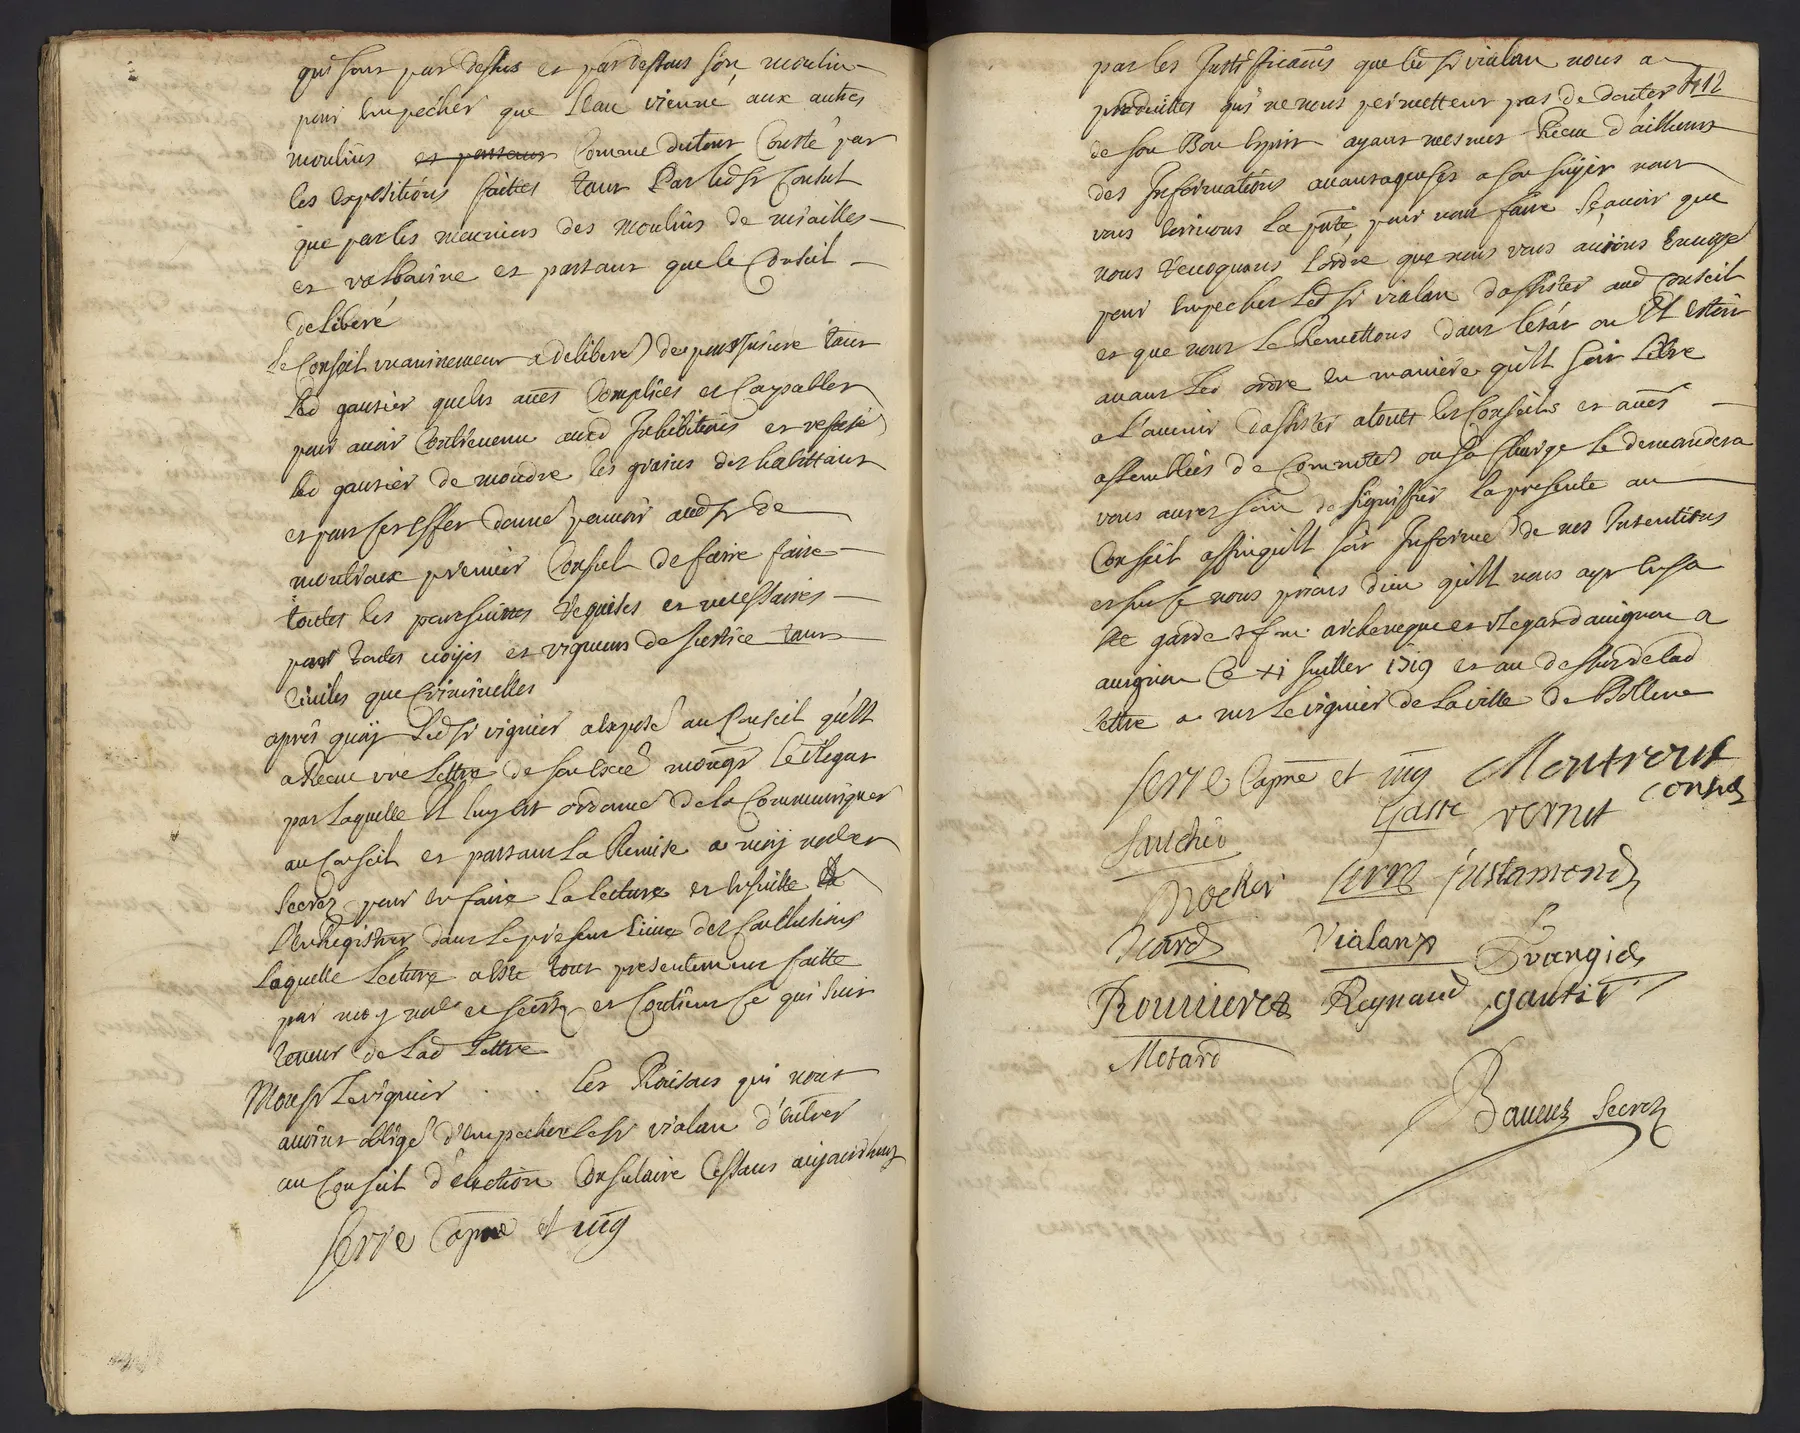 qui sont par dessus et par dessous son moulin
pour empecher que l'eau vienne aux autres
moulins et partant comme du tout conste par
les expositions faittes tant par led sr consul
que par les meuniers des moulins de miailles
et valbonne et partant que le conseil
deliberé
le Conseil unanimement a deliberé de poursuivre tant
led gautier que les aues complices et coupables
pour avoir contrevenu aux d Inhibitions et refusé
led gautier de moudre les grains des habittans
et pour ses effet donné pouvoir aud sr de
montroux premier Consul de faire faire
toutes les poursuittes requises et necessaires
par toutes voyes et vigueurs de justice tant
civiles que Criminelles
après quoy led sr viguier a exposé au Conseil qu'ill
a Receu une Lettre de son excee monsgr le vlegat
par laquelle Il luy est ordonné de la Communiquer
au Conseil et partant la Remise a moy notre
secre pour en faire la lecture et ensuitte la
l'enRegistrer dans le present livre des Conclusions
laquelle Lecture a esté tout presentement faitte
par moy nore et secre et contient ce qui suit
teneur de lad Lettre
Monsr Le viguier . . . . les Raisons qui nous
avoint obligé d'empecher le sr vialan d'entrer
au Conseil d'election Consulaire Cessans aujourdhuy
serre Capne et vig
par les Justificaōns que led sr vialan nous a
produittes qui ne nous permetteur pas de douter 412
de son Bon esprit ayant mesmes Receu d'ailleurs
des Informations avantageuses a son sujet nous
vous escrivons la pnte pour vous faire sçavoir que
nous revoquons l'ordre que nous vous avions envoyé
pour empecher led sr vialan d'assister aud conseil
et que nous le Remettons dans l'etat ou Il estoit
avant led ordre en maniere qu'ill soit Libre
a l'avenir d'assister a toutes les Conseils et aues
assemblées de Commté ou sa charge le demandera
vous aures soin de signiffier la presente au
Conseil affinqu'ill soit Informé de nos Intentions
et sur ce nous prions dieu qu'ill vous aye en sa
ste garde s f m. archeveque et vlegat d'avignon a
avignon Ce xi Juillet 1719 et au dessus de lad
lettre a mr Le viguier de la ville de Bollene
serre Capne et vig Montroux
consul
faucher Gatte vernet
Rocher serre justamond
Nard Vialanx Evangied
Roumieres Reynaud gautier
Motard
Baueux Secre